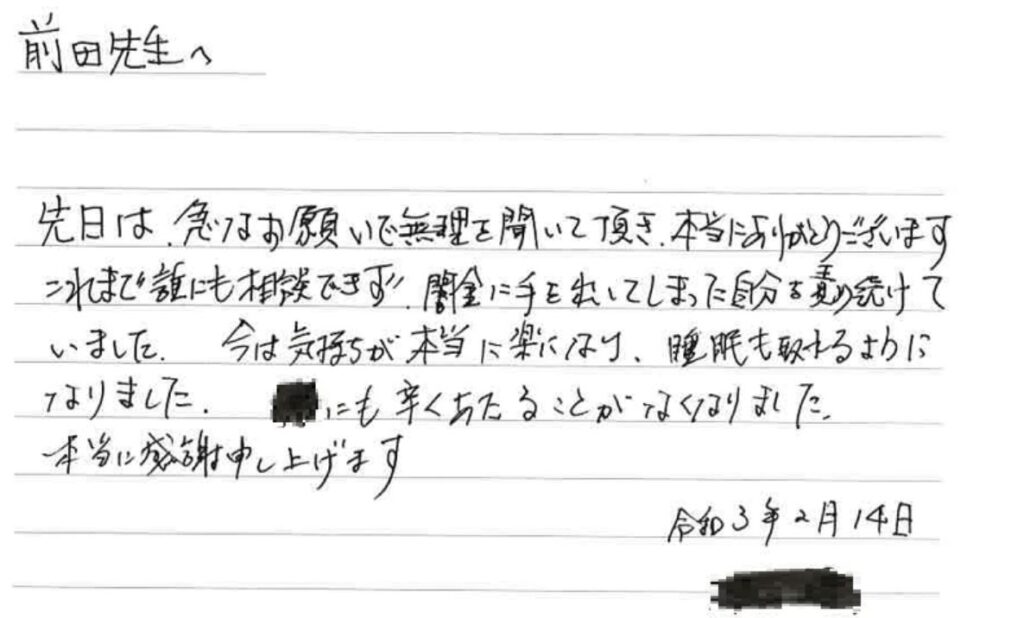 前田先生へ
先日は、急なお願いで無理を聞いて頂き、本当にありがとうございます
これまで誰にも相談できず、闇金に手を出してしまった自分を責め続けて
いました. 今は気持ちが本当に楽になり、睡眠も取れるように
なりました. にも辛くあたることがなくなりました.
本当に感謝申し上げます
令和3年2月14日